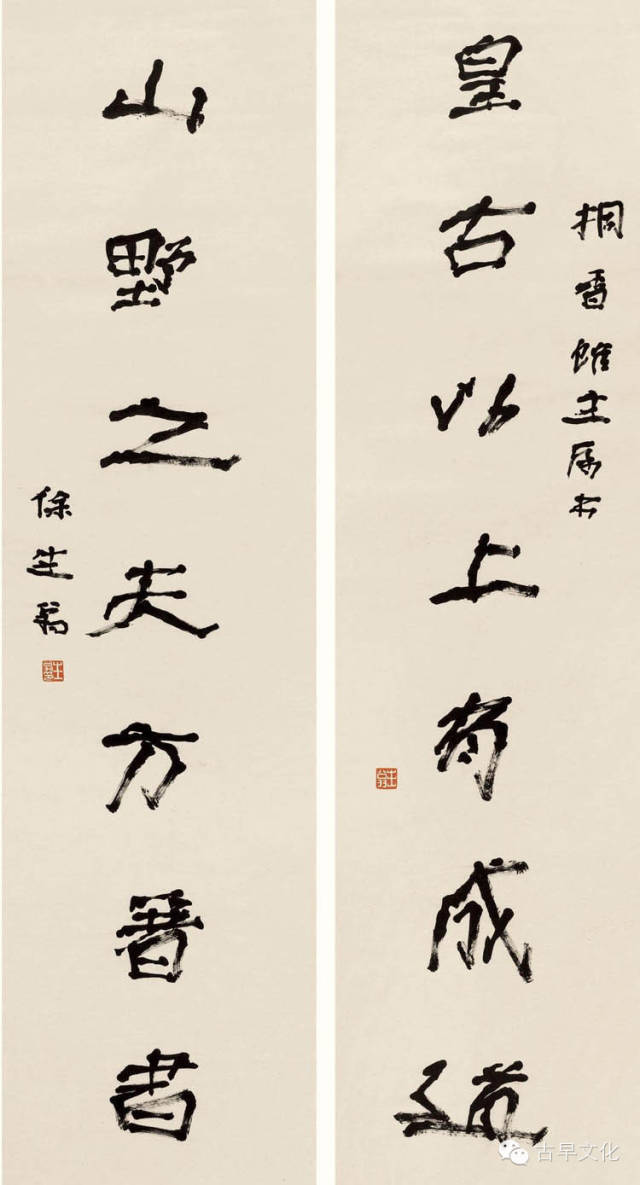 桐香館主属书
皇古以上有成道
山野之夫方著書
徐生翁
古早文化